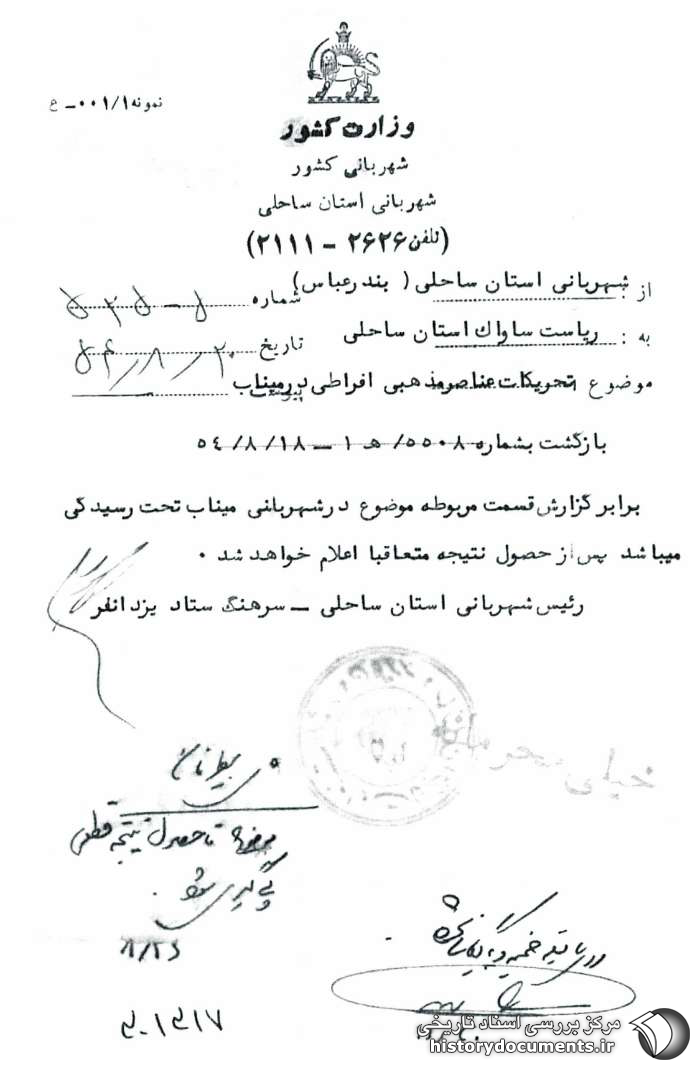 نمونه ۰۰۱/۱ - ع
وزارت کشور
شهربانی کشور
شهربانی استان ساحلی
(تلفن ۲۶۲۶ - ۲۱۱۱)
از : شهربانی استان ساحلی ( بندرعباس)
شماره ۵-۵۲۵
به : ریاست ساواک استان ساحلی
تاریخ ۵۴/۸/۲۰
موضوع : تحریکات عناصر مذهبی افراطی در میناب
پیوست
بازگشت بشماره ۵۵۰۸/ هـ ۱ – ۵٤/۸/۱۸
برابر گزارش قسمت مربوطه موضوع در شهربانی میناب تحت رسیدگی
میباشد پس از حصول نتیجه متعاقبا اعلام خواهد شد ۰
رئیس شهربانی استان ساحلی – سرهنگ ستاد یزدانفر
خیلی محرمانه
موضوع تا حصول نتیجه قطعی
پی گیری شود .
۸/۲۶
مرکز بررسی اسناد تاریخی
historydocuments.ir